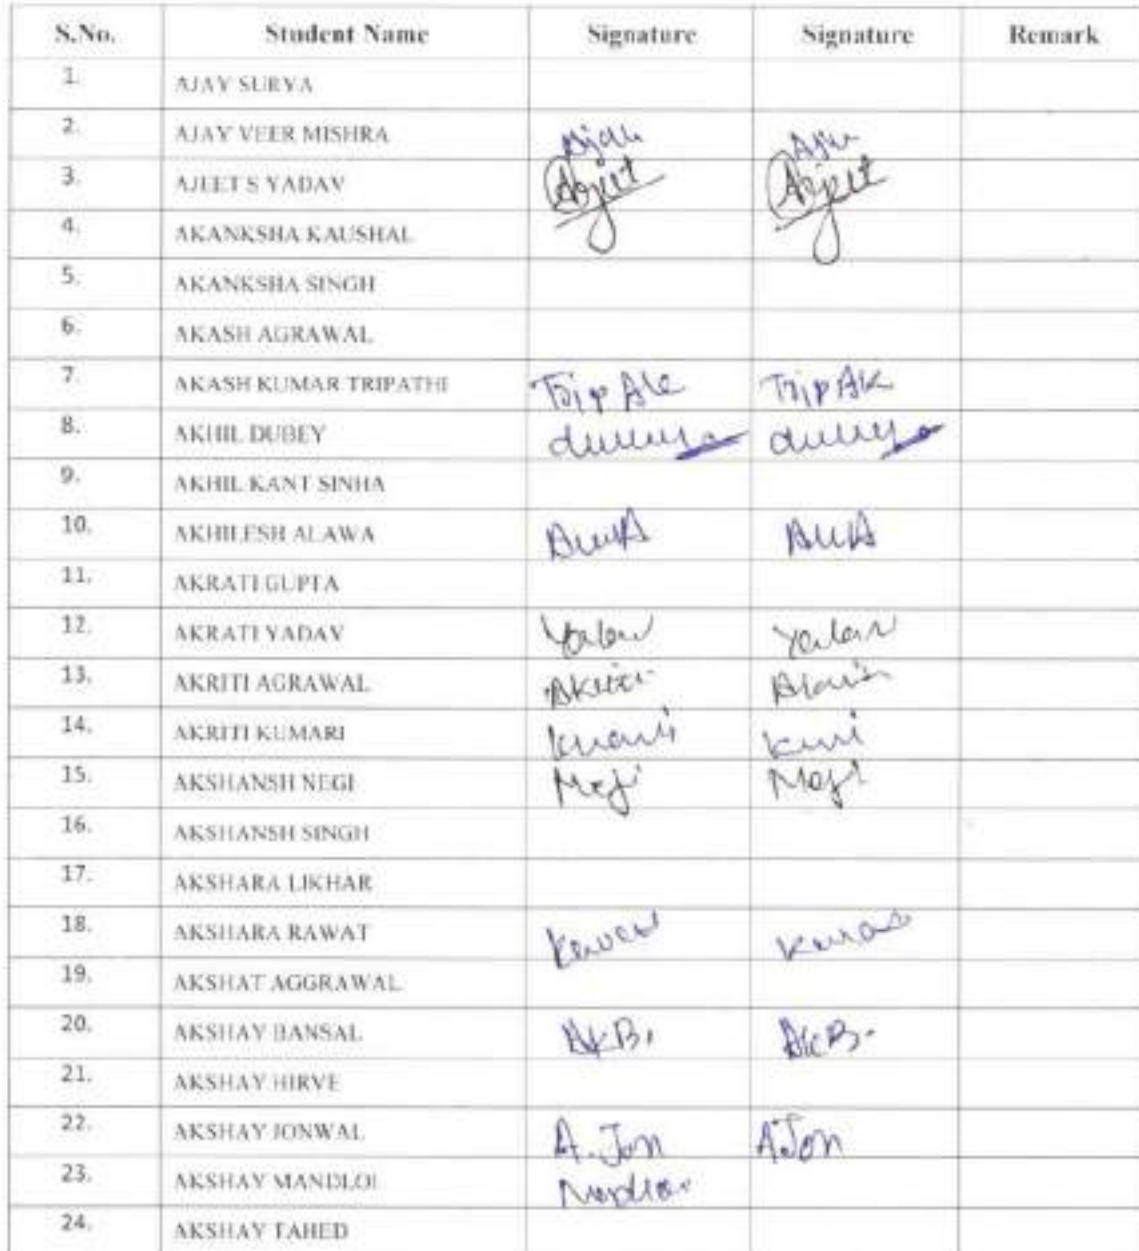 S.No. Student Name Signature Signature Remark
1. AJAY SURYA
2. AJAY VEER MISHRA Ajau
3. AJEET S YADAV Arjeet Arjeet
4. AKANKSHA KAUSHAL
5. AKANKSHA SINGH
6. AKASH AGRAWAL
7. AKASH KUMAR TRIPATHI TripAk TripAk
8. AKHIL DUBEY
9. AKHIL KANT SINHA
10. AKHILESH ALAWA
11. AKRATI GUPTA
12. AKRATI YADAV Yadav Yadav
13. AKRITI AGRAWAL Akriti
14. AKRITI KUMARI
15. AKSHANSH NEGI Negi Negi
16. AKSHANSH SINGH
17. AKSHARA LIKHAR
18. AKSHARA RAWAT
19. AKSHAT AGGRAWAL
20. AKSHAY BANSAL AKB. AKB.
21. AKSHAY HIRVE
22. AKSHAY JONWAL A. Jon A Jon
23. AKSHAY MANDLOI Mandloi
24. AKSHAY TAHED